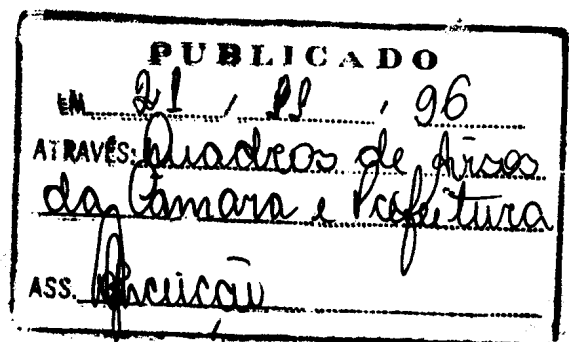 PUBLICADO
EM 21 / 11 / 96
ATRAVÉS: Quadros de Avisos
da Câmara e Prefeitura
ASS.